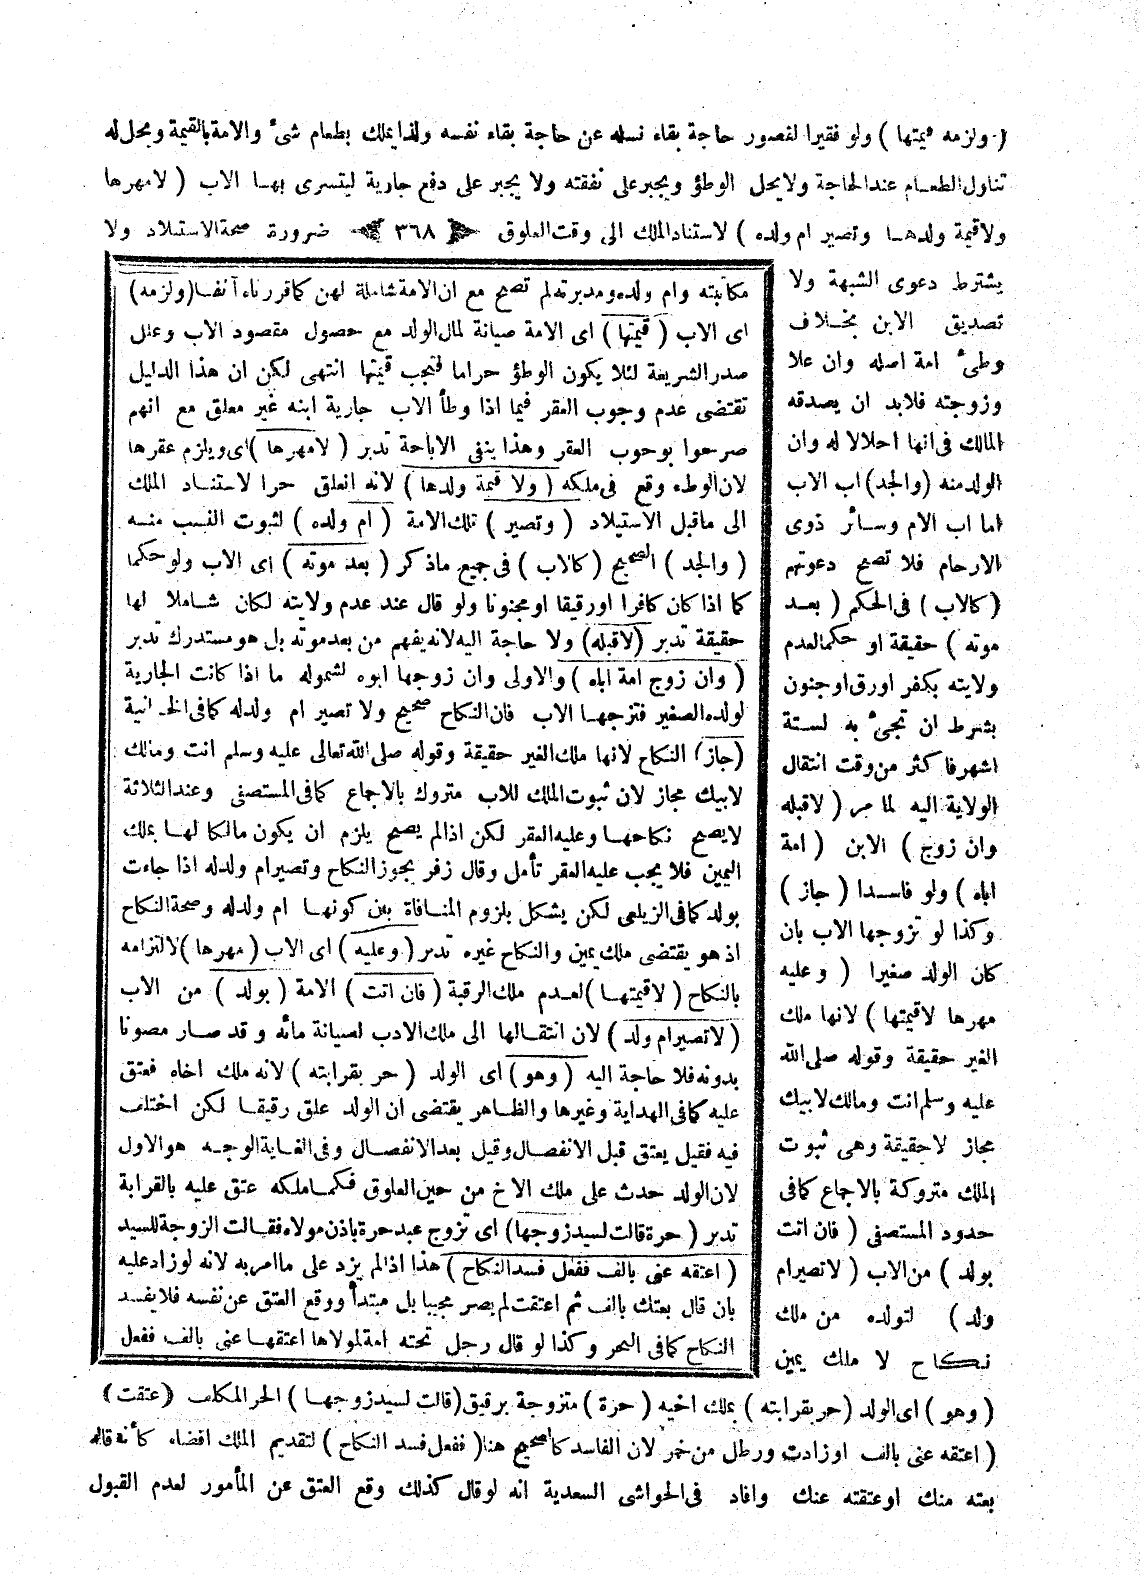 ( ولزمه قيمتها ) ولو فقيرا لقصور حاجة بقاء نسله عن حاجة بقاء نفسه ولذا يملك بطعام شئ والامة بالقيمة ويحل له
تناول الطعام عند الحاجة ولا يحل الوطؤ ويجبر على نفقته ولا يجبر على دفع جارية ليتسرى بها الاب ( لا مهرها
ولا قيمة ولدها وتصير ام ولده ) لاستناد الملك الى وقت العلوق ﴿ ٣٦٨ ﴾ ضرورة صحة الاستيلاد ولا
يشترط دعوى الشبهة ولا
تصديق الابن بخلاف
وطئ امة اصله وان علا
وزوجته فلابد ان يصدقه
المالك فى انها احلالا له وان
الولد منه ( والجد ) اب الاب
اما اب الام وسائر ذوى
الارحام فلا تصح دعوتهم
( كالاب ) فى الحكم ( بعد
موته ) حقيقة او حكما لعدم
ولايته بكفر اورق او جنون
بشرط ان تجئ به لستة
اشهر فاكثر من وقت انتقال
الولاية اليه لما مر ( لاقبله
وان زوج ) الابن ( امة
اباه ) ولو فاسدا ( جاز )
وكذا لو تزوجها الاب بان
كان الولد صغيرا ( وعليه
مهرها لاقيمتها ) لانها ملك
الغير حقيقة وقوله صلى الله
عليه وسلم انت ومالك لابيك
مجاز لاحقيقة وهى ثبوت
الملك متروكة بالاجماع كما فى
حدود المستصفى ( فان اتت
بولد ) من الاب ( لاتصير ام
ولد ) لتولده من ملك
نكاح لا ملك يمين
مكاتبته وام ولده ومدبرته لم تصح مع ان الامة شاملة لهن كما قررناه آنفا ( ولزمه )
اى الاب ( قيمتها ) اى الامة صيانة لمال الولد مع حصول مقصود الاب وعلل
صدر الشريعة لئلا يكون الوطؤ حراما فتجب قيمتها انتهى لكن ان هذا الدليل
تقتضى عدم وجوب العقر فيما اذا وطأ الاب جارية ابنه غير معلق مع انهم
صرحوا بوجوب العقر وهذا ينفى الاباحة تدبر ( لامهرها ) اى ويلزم عقرها
لان الوطء وقع فى ملكه ( ولا قيمة ولدها ) لانه انعلق حرا لاستناد الملك
الى ماقبل الاستيلاد ( وتصير ) تلك الامة ( ام ولده ) لثبوت النسب منه
( والجد ) الصحيح ( كالاب ) فى جميع ماذكر ( بعد موته ) اى الاب ولو حكما
كما اذا كان كافرا اورقيقا او مجنونا ولو قال عند عدم ولايته لكان شاملا لها
حقيقة تدبر ( لاقبله ) ولا حاجة اليه لانه يفهم من بعد موته بل هو مستدرك تدبر
( وان زوج امة اباه ) والاولى وان زوجها ابوه لشموله ما اذا كانت الجارية
لولده الصغير فتزجها الاب فان النكاح صحيح ولا تصير ام ولدله كما فى الخانية
( جاز ) النكاح لانها ملك الغير حقيقة وقوله صلى الله تعالى عليه وسلم انت ومالك
لابيك مجاز لان ثبوت الملك للاب متروك بالاجماع كما فى المستصفى وعند الثلاثة
لايصح نكاحها وعليه العقر لكن اذالم يصح يلزم ان يكون مالكا لها بملك
اليمين فلا يجب عليه العقر تأمل وقال زفر يجوز النكاح وتصير ام ولدله اذا جاءت
بولد كما فى الزيلعى لكن يشكل بلزوم المنافاة بين كونها ام ولدله وصحة النكاح
اذ هو يقتضى ملك يمين والنكاح غيره تدبر ( وعليه ) اى الاب ( مهرها ) لالتزامه
بالنكاح ( لاقيمتها ) لعدم ملك الرقبة ( فان اتت ) الامة ( بولد ) من الاب
( لاتصير ام ولد ) لان انتقالها الى ملك الادب لصيانة مائه وقد صار مصونا
بدونه فلا حاجة اليه ( وهو ) اى الولد ( حر بقرابته ) لانه ملك اخاه فعتق
عليه كما فى الهداية وغيرها والظاهر يقتضى ان الولد علق رقيقا لكن اختلف
فيه فقيل يعتق قبل الانفصال وقيل بعد الانفصال وفى الغاية الوجه هو الاول
لان الولد حدث على ملك الاخ من حين العلوق فكما ملكه عتق عليه بالقرابة
تدبر ( حرة قالت لسيد زوجها ) اى تزوج عبد حرة باذن مولاه فقالت الزوجة للسيد
( اعتقه عنى بالف ففعل فسد النكاح ) هذا اذالم يزد على ما امر به لانه لوزاد عليه
بان قال بعتك بالف ثم اعتقت لم يصر مجيبا بل مبتدأ ووقع العتق عن نفسه فلا يفسد
النكاح كما فى البحر وكذا لو قال رجل تحته امة لمولاها اعتقها عنى بالف ففعل
( وهو ) اى الولد ( حر بقرابته ) بملك اخيه ( حرة ) متزوجة برقيق ( قالت لسيد زوجها ) الحر المكلف ( عتقت )
( اعتقه عنى بالف اوزادت ورطل من خمر لان الفاسد كالصحيح هنا ( ففعل فسد النكاح ) لتقديم الملك اقتضاء كأنه قاله
بعته منك اوعتقته عنك وافاد فى الحواشى السعدية انه لوقال كذلك وقع العتق عن المأمور لعدم القبول